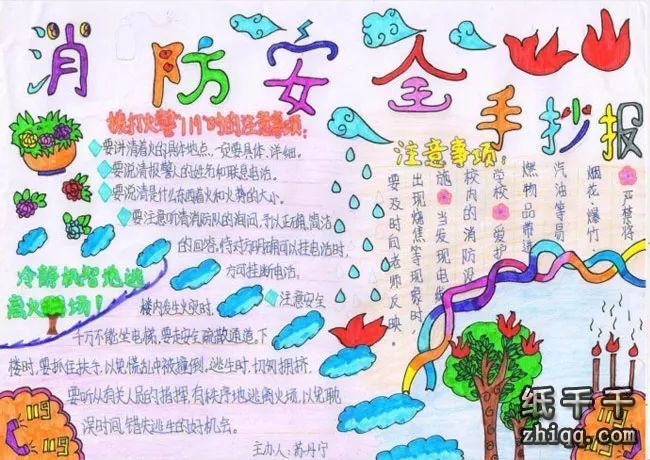 消防安全手抄报
拨打火警"119"时的注意事项:
要讲清着火的具体地点,一定要具体、详细。
要说清报警人的姓名和联系电话。
要说清是什么东西着火和火势的大小。
要注意听清消防队的询问,予以正确,简洁
的回答,待对方明确可以挂电话时,
方可挂断电话。
冷静机智地逃
离火场!
注意安全
楼内发生火灾时,
千万不能坐电梯,要走安全疏散通道,下
楼时,要抓住扶手,以免慌乱中被撞倒。逃生时,切勿拥挤,
要听从有关人员的指挥,有秩序地逃离火场,以免耽
误时间,错失逃生的好机会。
主办人:苏丹宁
注意事项:
严禁将
烟花、爆竹
汽油等易
燃物品带进
学校 爱护
校内的消防设
施 当发现电
出现烧焦等现象时,
要及时向老师反映。
119
119
纸千千
zhiqq.com